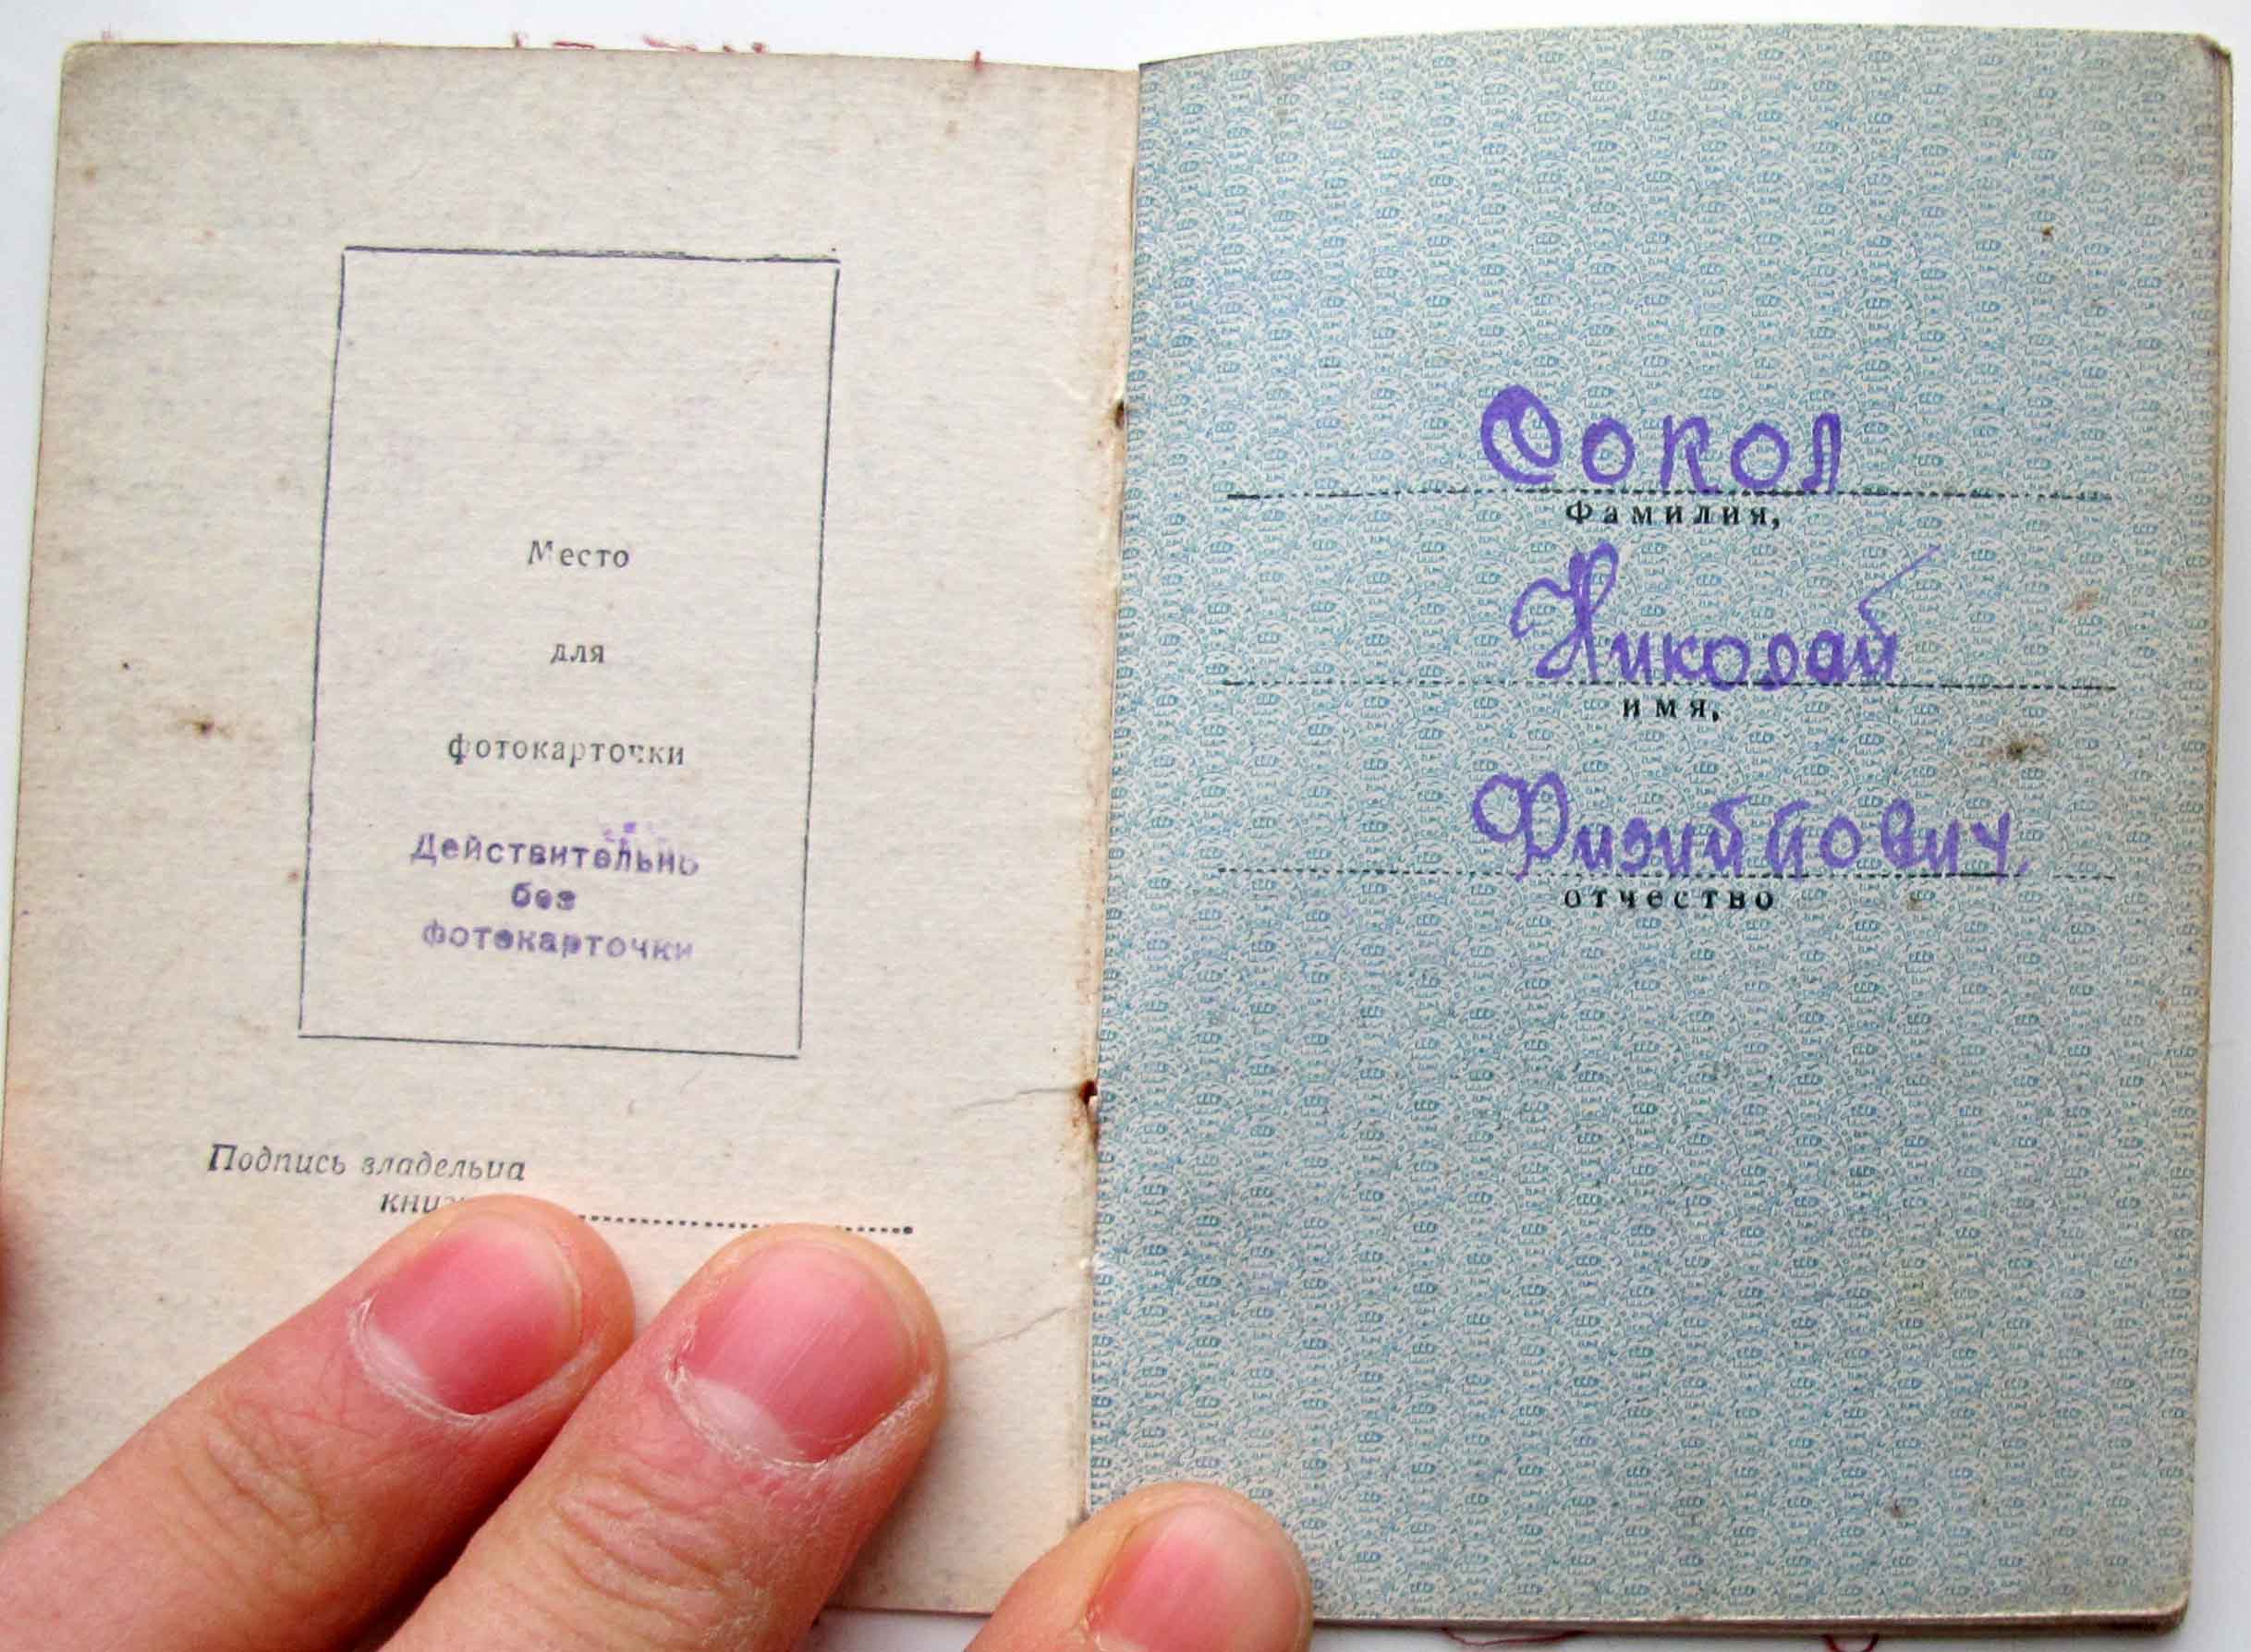 Место
для
фотокарточки
Действительно
без
фотокарточки
Подпись владельца
Сокол
Фамилия,
Николай
имя,
отчество